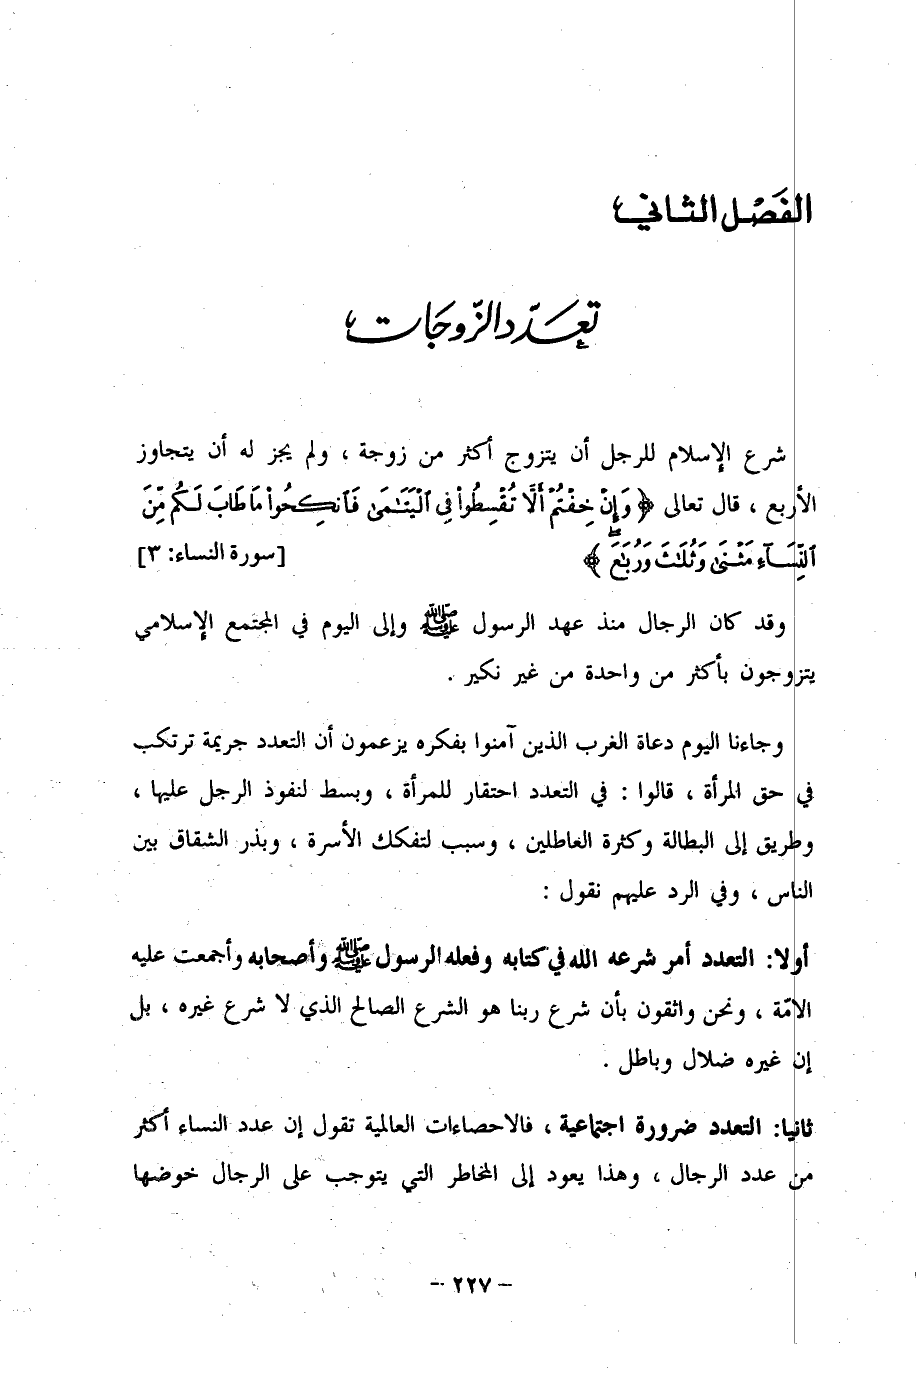 الفَصْل الثاني
تعَدّد الزّوجَات
شرع الإسلام للرجل أن يتزوج أكثر من زوجة ، ولم يجز له أن يتجاوز
الأربع ، قال تعالى ﴿ وَإِنْ خِفْتُمْ أَلَّا تُقْسِطُوا۟ فِى ٱلْيَتَـٰمَىٰ فَٱنكِحُوا۟ مَا طَابَ لَكُم مِّنَ
ٱلنِّسَآءِ مَثْنَىٰ وَثُلَـٰثَ وَرُبَـٰعَ ۖ ﴾ [سورة النساء: ٣]
وقد كان الرجال منذ عهد الرسول ﷺ وإلى اليوم في المجتمع الإسلامي
يتزوجون بأكثر من واحدة من غير نكير .
وجاءنا اليوم دعاة الغرب الذين آمنوا بفكره يزعمون أن التعدد جريمة ترتكب
في حق المرأة ، قالوا : في التعدد احتقار للمرأة ، وبسط لنفوذ الرجل عليها ،
وطريق إلى البطالة وكثرة العاطلين ، وسبب لتفكك الأسرة ، وبذر الشقاق بين
الناس ، وفي الرد عليهم نقول :
أولا: التعدد أمر شرعه الله في كتابه وفعله الرسول ﷺ وأصحابه وأجمعت عليه
الامّة ، ونحن واثقون بأن شرع ربنا هو الشرع الصالح الذي لا شرع غيره ، بل
إن غيره ضلال وباطل .
ثانيا: التعدد ضرورة اجتماعية ، فالاحصاءات العالمية تقول إن عدد النساء أكثر
من عدد الرجال ، وهذا يعود إلى المخاطر التي يتوجب على الرجال خوضها
- ٢٢٧ -